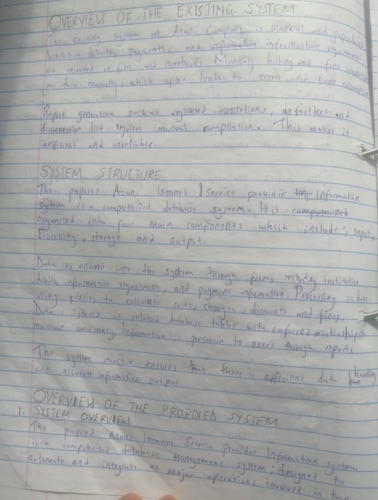 OVERVIEW OF THE EXISTING SYSTEM
The existing system at Azani Company is manual and paperbased
Institution details, payments and information infrastructure requirements
are recorded in files and notebooks. Monthly billing and fine
are done manually, which often leads to errors and time
Report generation such as registered institutions, defaulters and
disconnection list requires manual compilation. This makes it
inefficient and unreliable.
SYSTEM STRUCTURE
The proposed Azani Internet Service provider Information
system is a computerized database system. It is
organised into four main components which include: input,
Processing, storage and output.
Data is entered into the system through forms including institution
details, infrastructure requirements, and payment information. Processing is done
using queries to calculate costs, charges, discounts and fines.
Data is stored in related database tables with enforced relationships
Information is presented to users through reports
The system structure ensures that there is efficient data handling
and accurate information output
OVERVIEW OF THE PROPOSED SYSTEM
1. SYSTEM OVERVIEW
The proposed Azani Internet Service Provider Information system
is a computerized database management system designed to
automate and integrate all major operations involved in the